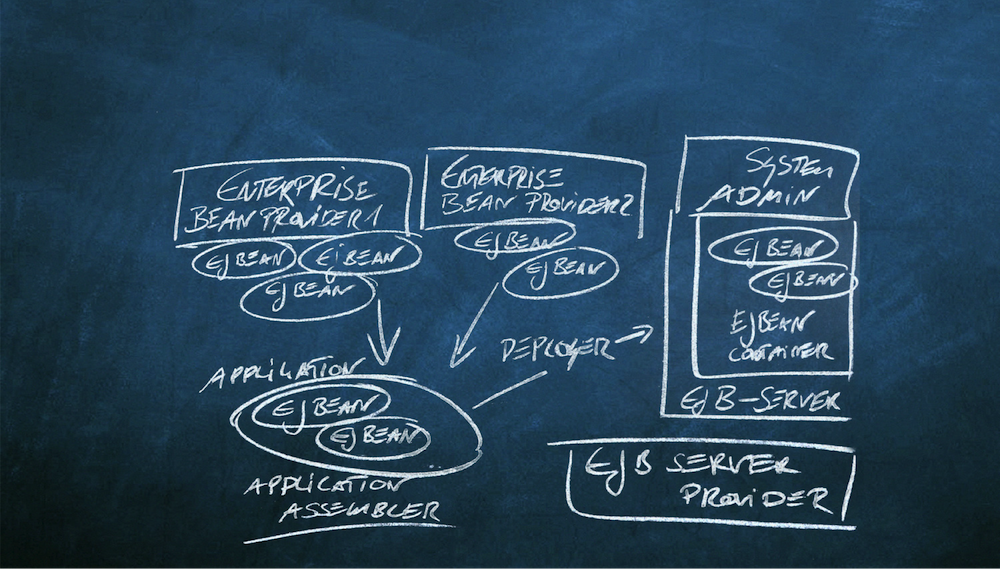 ENTERPRISE
BEAN PROVIDER 1
EJ BEAN
EJ BEAN
EJ BEAN
ENTERPRISE
BEAN PROVIDER 2
EJ BEAN
EJ BEAN
SYSTEM
ADMIN
EJ BEAN
EJ BEAN
EJ BEAN
CONTAINER
EJB-SERVER
DEPLOYER
APPLICATION
EJ BEAN
EJ BEAN
APPLICATION
ASSEMBLER
EJB SERVER
PROVIDER